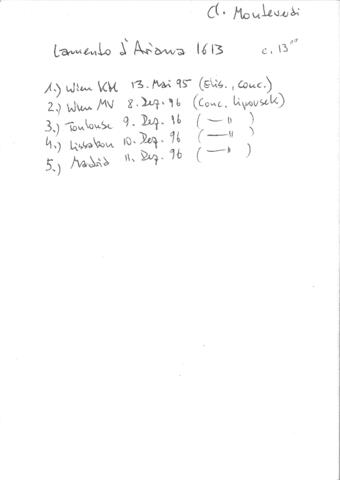 Cl. Monteverdi
Lamento d'Ariana 1613 c. 13'"
1.) Wien KH 13. Mai 95 (Elis., Conc.)
2.) Wien MV 8. Dez. 96 (Conc. Lipovsek)
3.) Toulouse 9. Dez. 96 ( —"— )
4.) Lissabon 10. Dez. 96 ( —"— )
5.) Madrid 11. Dez. 96 ( —"— )